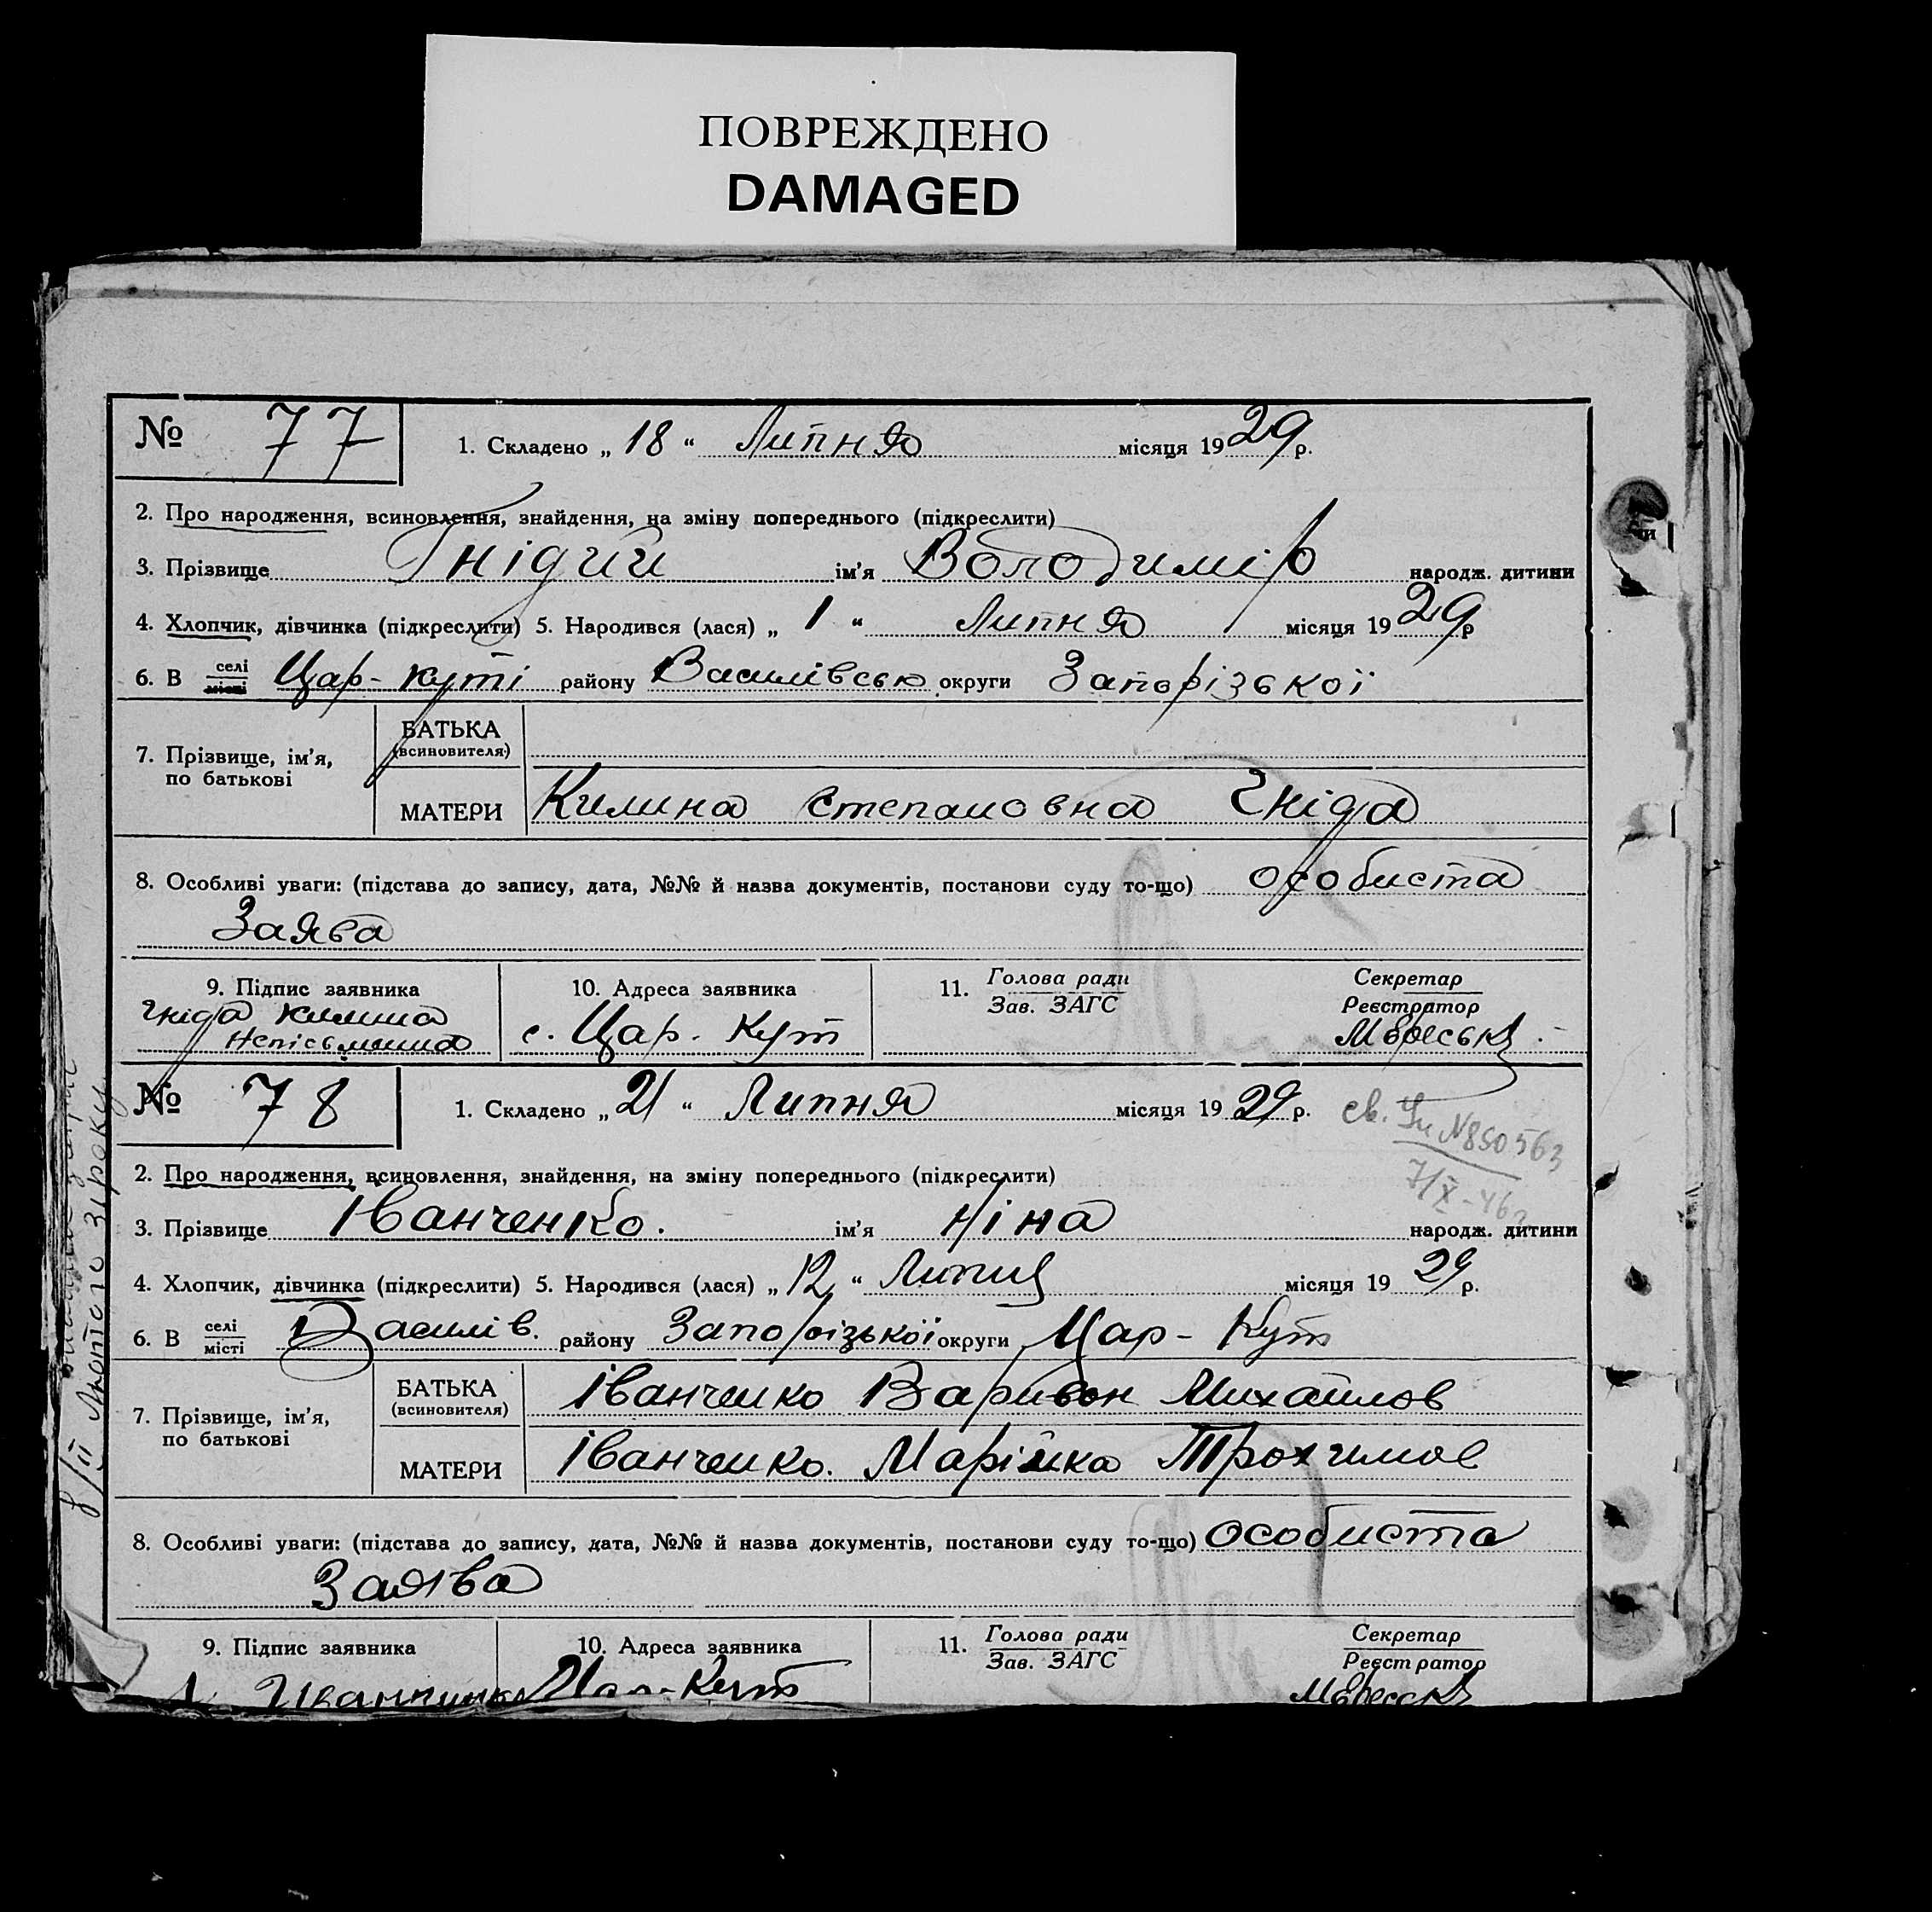 ПОВРЕЖДЕНО
DAMAGED
№ 77 1. Складено „ 18 “ Липня місяця 1929 р.
2. Про народження, всиновлення, знайдення, на зміну попереднього (підкреслити)
3. Прізвище Гнідий ім’я Володимір народж. дитини
4. Хлопчик, дівчинка (підкреслити) 5. Народився (лася) „ 1 “ Липня місяця 1929 р
6. В селі місті Цар-куті району Василівсько округи Запорізької
7. Прізвище, ім’я, по батькові
БАТЬКА (всиновителя)
МАТЕРИ Килина Степановна Гніда
8. Особливі уваги: (підстава до запису, дата, №№ й назва документів, постанови суду то-що) особиста
Заява
9. Підпис заявника 10. Адреса заявника 11. Голова ради Секретар
Зав. ЗАГС Реєстратор
Гніда Килина с. Цар. Кут
Неписьменна
№ 78 1. Складено „ 21 “ Липня місяця 1929 р.
св. N850563
7/X-46
2. Про народження, всиновлення, знайдення, на зміну попереднього (підкреслити)
3. Прізвище Іванченко. ім’я Ніна народж. дитини
4. Хлопчик, дівчинка (підкреслити) 5. Народився (лася) „ 12 “ Липня місяця 1929 р.
6. В селі місті Василів. району Запорізької округи Цар-Кут
7. Прізвище, ім’я, по батькові
БАТЬКА (всиновителя) Іванченко Варивон Михайлов
МАТЕРИ Іванченко. Марійка Трохимов
8. Особливі уваги: (підстава до запису, дата, №№ й назва документів, постанови суду то-що) особиста
Заява
9. Підпис заявника 10. Адреса заявника 11. Голова ради Секретар
Зав. ЗАГС Реєстратор
Цар-Кут